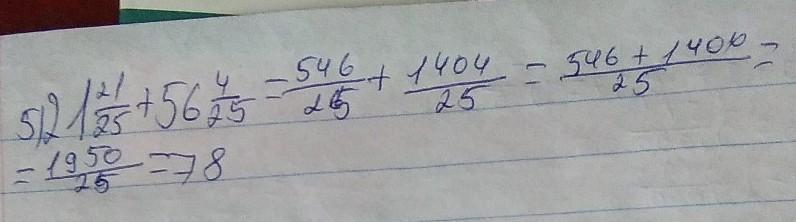 5) 21 21/25 + 56 4/25 = 546/25 + 1404/25 = 546 + 1400/25 =
= 1950/25 = 78